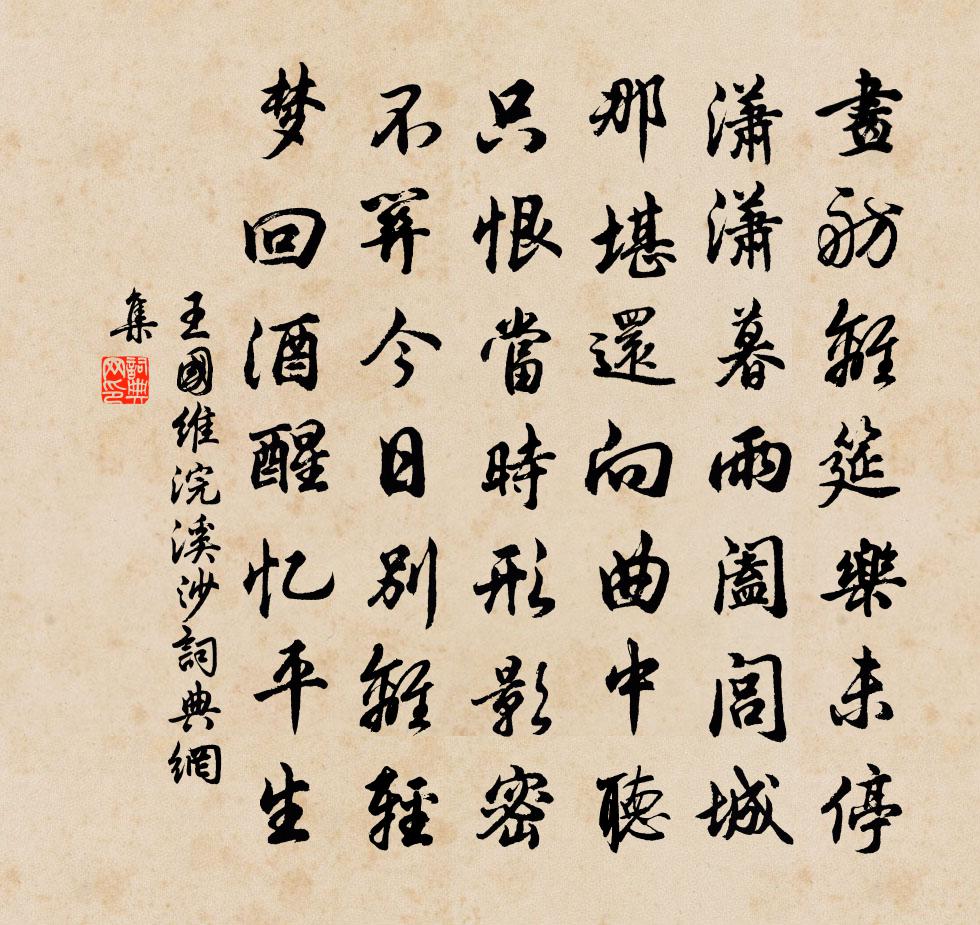 畫舫離筵樂未停
瀟瀟暮雨闔閭城
那堪還向曲中聽
只恨當時形影密
不關今日別離輕
梦回酒醒忆平生
王國維浣溪沙詞典網
集
詞典网印